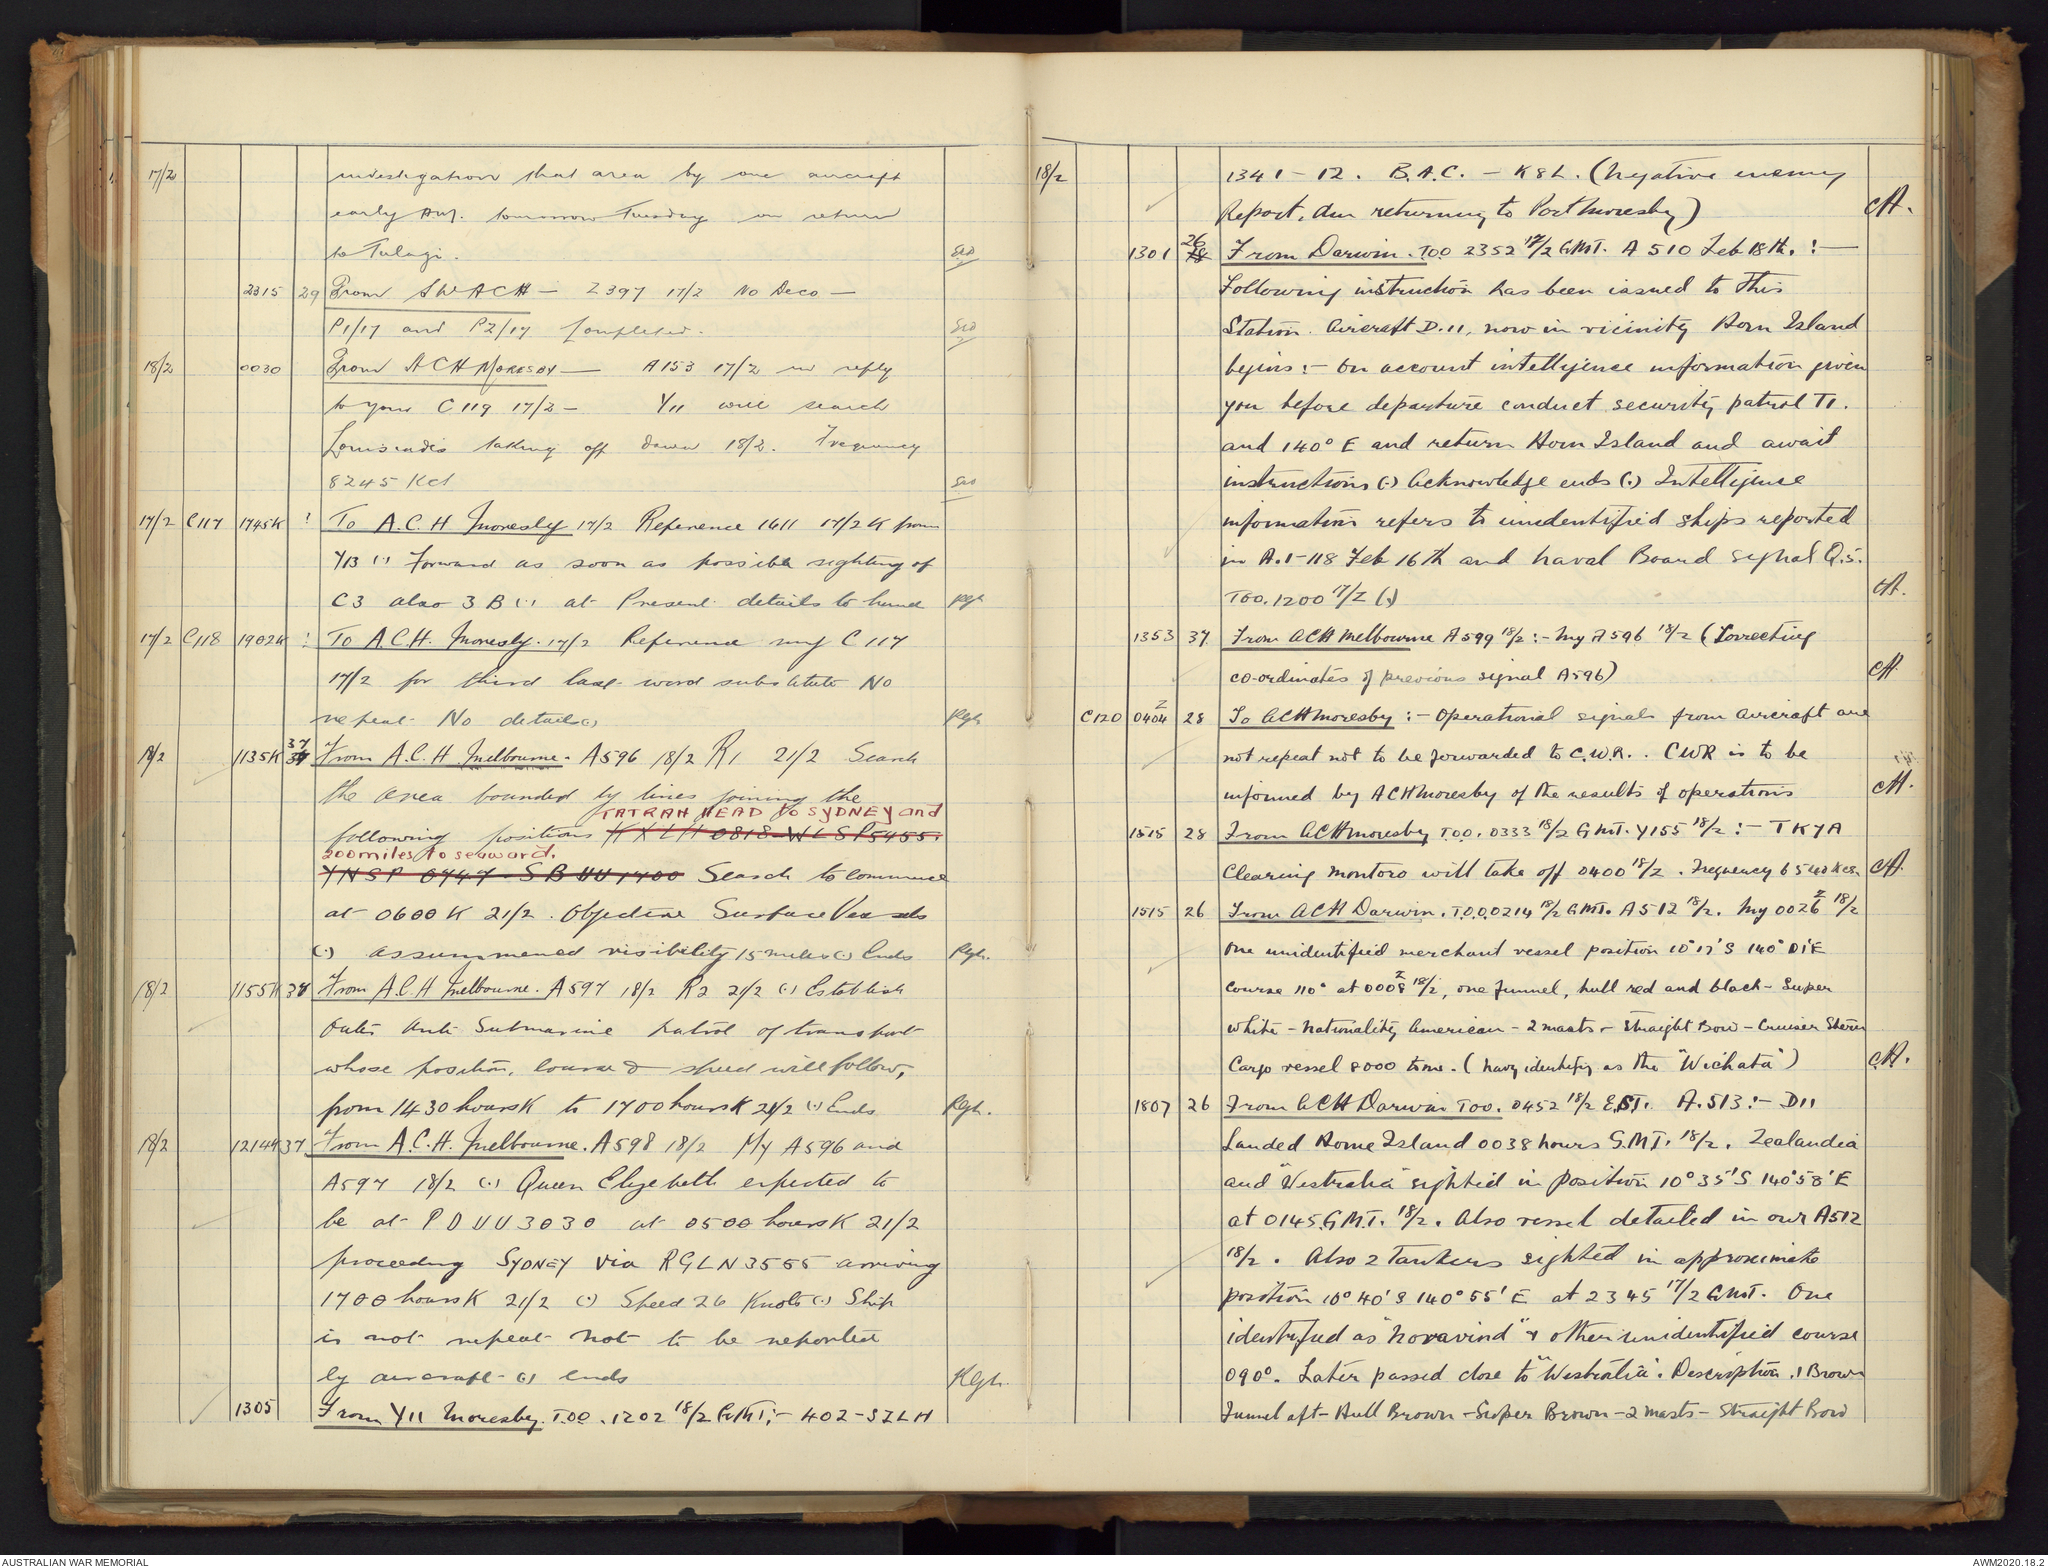 17/2 investigation that area by one aircraft
early A.M. tomorrow Tuesday on return
to Tulagi.
2315 29 From SWACH — Z397 17/2 No Deco —
P1/17 and P2/17 Completed.
18/2 0030 From ACH MORESBY — A153 17/2 in reply
to your C119 17/2 — Y11 will search
Louisiades taking off dawn 18/2. Frequency
8245 Kcs
17/2 C117 1745K ! To A.C.H Moresby 17/2 Reference 1611 17/2 K from
Y13 (.) Forward as soon as possible sighting of
C3 also 3 B (.) at Present details to hand Rgh
17/2 C118 1902K ! To A.C.H. Moresby. 17/2 Reference my C117
17/2 for third last word substitute No
repeat No details (.) Rgh
18/2 1135K 37 From A.C.H Melbourne. A596 18/2 R1 21/2 Search
the area bounded by lines joining the
TATRAH HEAD to SYDNEY and
following positions KXLH 0818 - WLSP5455.
200 miles to seaward.
YNSP 0747 - SBUU1400 Search to commence
at 0600K 21/2. Objective Surface Vessels
(.) assummened visibility 15 miles (.) Ends Rgh.
18/2 1155K 37 From A.C.H Melbourne. A597 18/2 R2 21/2 (.) Establish
Outer Anti Submarine patrol of transport
whose position, course & speed will follow,
from 1430 hours K to 1700 hours K 21/2 (.) Ends Rgh.
18/2 1214K 37 From A.C.H. Melbourne. A598 18/2 My A596 and
A597 18/2 (.) Queen Elizebeth expected to
be at PDUU3030 at 0500 hours K 21/2
proceeding SYDNEY via RGLN3555 arriving
1700 hours K 21/2 (.) Speed 26 Knots (.) Ship
is not repeat not to be reported
by aircraft (.) ends Rgh.
1305 From Y11 Moresby. T.O.O. 1202 18/2 GMT:- 402-SZLH
18/2 1341 - 12. B.A.C. - K8L. (Negative enemy
Report. Am returning to Port Moresby) CH.
1301 26 From Darwin. T.O.O 2352 17/2 G.M.T. A510 Feb 18th. :—
Following instruction has been issued to this
Station. Aircraft D.11, now in vicinity Horn Island
begins :- On account intelligence information given
you before departure conduct security patrol TI.
and 140° E and return Horn Island and await
instructions (.) Acknowledge ends (.) Intelligence
information refers to unidentified ships reported
in A.1-118 Feb 16th and Naval Board signal Q.5.
TOO. 1200 17/2 (.) CH.
1353 37 From ACH Melbourne A599 18/2 :- My A596 18/2 (Correcting
co-ordinates of previous signal A596) CH
C120 0404 Z 28 To ACH Moresby :- Operational signals from aircraft are
not repeat not to be forwarded to C.W.R. . CWR is to be
informed by ACH Moresby of the results of operations CH.
1515 28 From ACH Moresby T.O.O. 0333 18/2 G.M.T. Y155 18/2 :- TKYA
Clearing Montoro will take off 0400 18/2. Frequency 6540 Kcs. CH.
1515 26 From ACH Darwin. T.O.O. 0214 18/2 G.M.T. A512 18/2. My 0026 Z 18/2
One unidentified merchant vessel position 10° 17' S 140° 01' E
Course 110° at 0008 Z 18/2, one funnel, hull red and black - Super
white - Nationality American - 2 masts - Straight Bow - Cruiser Stern
Cargo vessel 8000 tons. (Navy identify as the "Wichata") CH.
1807 26 From ACH Darwin TOO. 0452 18/2 E.S.T. A.513 :- D11
Landed Horne Island 0038 hours G.M.T. 18/2. Zealandia
and "Westralia" sighted in position 10° 35' S 140° 58' E
at 0145 G.M.T. 18/2. Also vessel detailed in our A512
18/2. Also 2 Tankers sighted in approximate
position 10° 40' S 140° 55' E at 2345 17/2 GMT. One
identified as "Noravind" & other unidentified course
090°. Later passed close to "Westralia". Description. 1 Brown
Funnel aft - Hull Brown - Super Brown - 2 masts - Straight Bow
AUSTRALIAN WAR MEMORIAL
AWM2020.18.2